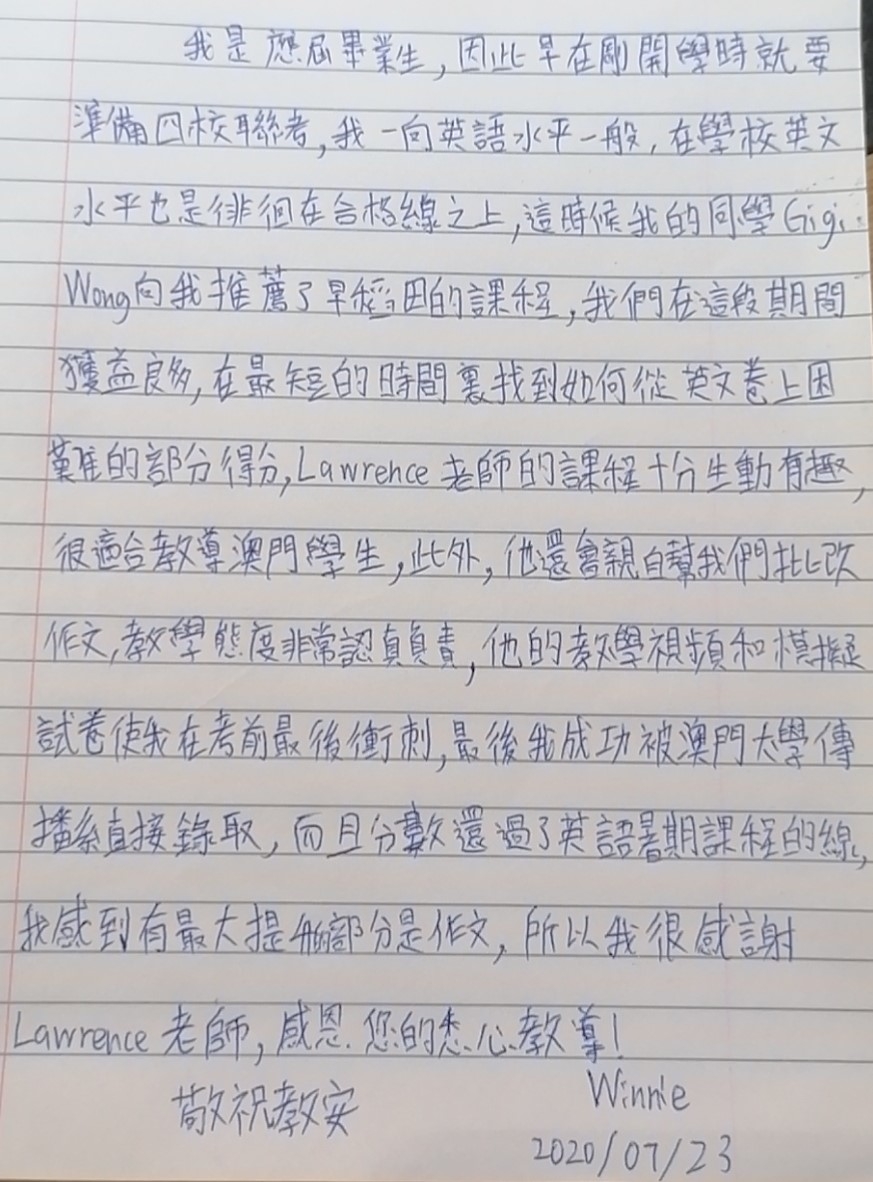 我是應屆畢業生，因此早在剛開學時就要
準備四校聯考，我一向英語水平一般，在學校英文
水平也是徘徊在合格線之上，這時候我的同學Gigi
Wong向我推薦了早稻田的課程，我們在這段期間
獲益良多，在最短的時間裏找到如何從英文卷上困
難的部分得分，Lawrence 老師的課程十分生動有趣，
很適合教導澳門學生，此外，他還會親自幫我們批改
作文，教學態度非常認真負責，他的教學視頻和模擬
試卷使我在考前最後衝刺，最後我成功被澳門大學傳
播系直接錄取，而且分數還過了英語暑期課程的線，
我感到有最大提 部分是作文，所以我很感謝
Lawrence 老師，感恩您的悉心教導！
敬祝教安
Winnie
2020/07/23